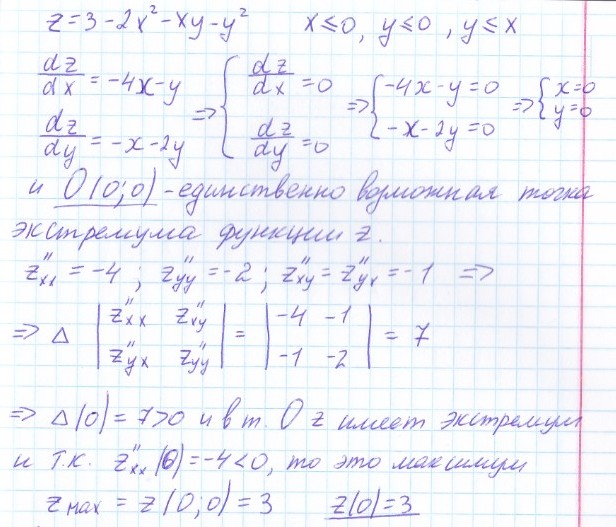 z=3-2x²-xy-y² x≤0, y≤0, y≤x
dz/dx = -4x-y ⇒ { dz/dx =0 ⇒ { -4x-y=0 ⇒ { x=0
dz/dy = -x-2y dz/dy =0 -x-2y=0 y=0
и O(0;0) - единственно возможная точка
экстремума функции z.
z''xx = -4 ; z''yy = -2 ; z''xy = z''yx = -1 ⇒
⇒ Δ | z''xx z''xy | = | -4 -1 | = 7
| z''yx z''yy | | -1 -2 |
⇒ Δ(0) = 7>0 и в т. O z имеет экстремум
и т.к. z''xx (0) = -4<0, то это максимум
z max = z(0;0) = 3 z(0)=3